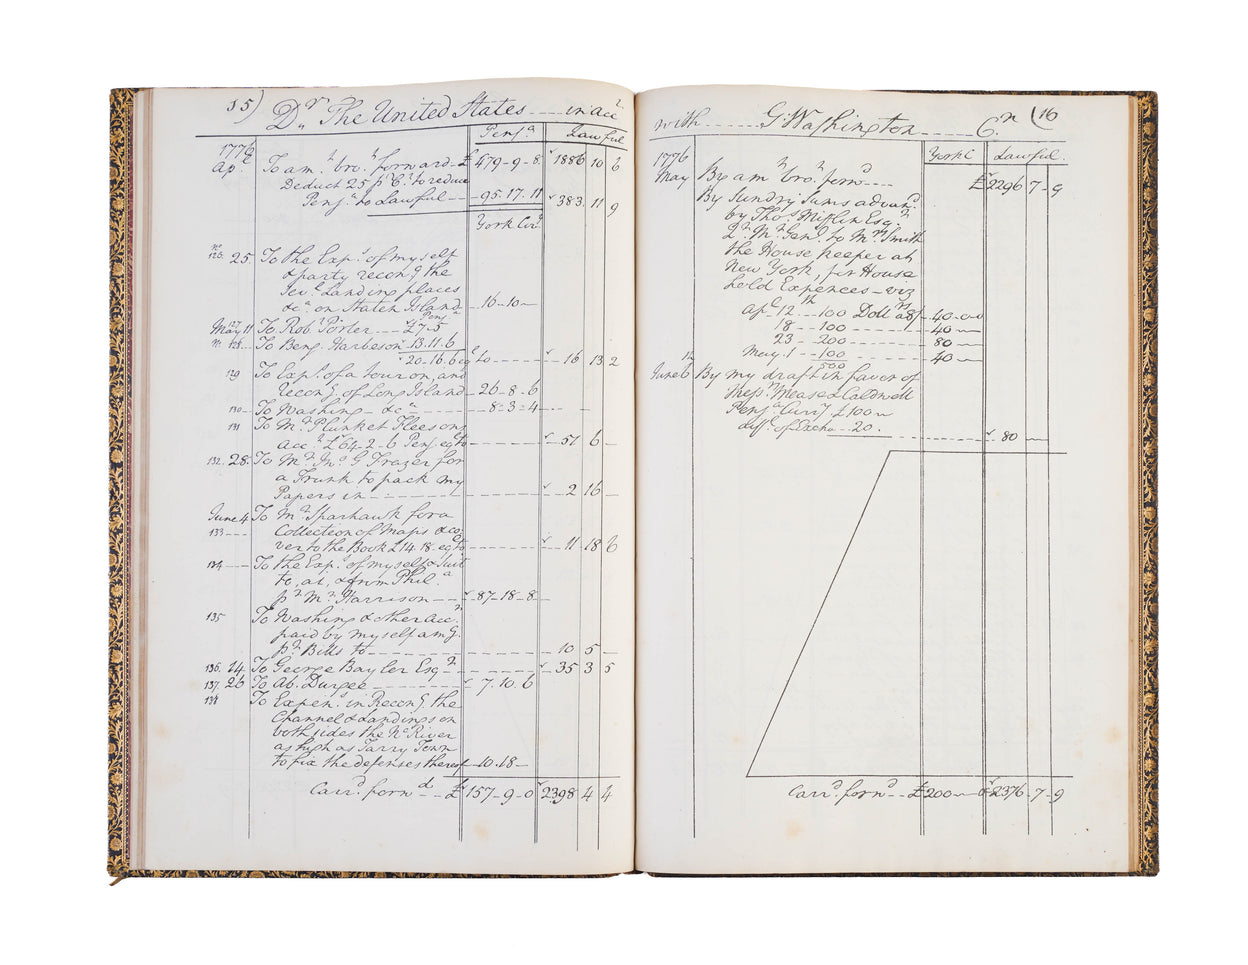 15) Dr The United States .... in acc
Penja Lawful
1776
Apl To amt brot forward - £ 479-9-8 1886 10 6
Deduct 25 pr Ct to reduce
Penja to Lawful - - 95.17.11 383 11 9
York Curr
No 128. 25 To the Exps of myself
& party recong the
Sevl Landing places
&ca on Staten Island - 16-10-
127 May 11 To Robt Porter - - - 27-5 Pena
No 128 To Benj Harbeson 13.11.6
20-16.6 eql to - - 16 13 2
129 To Exps of a tour on, and
Recong of Long Island - 26-8-6
130 - To Washing - &ca - - 8-3-4
131 To Mr Plunket Fleeson's
acct £64-2-6 Penj eql to - - 51 6 -
132. 28. To Mr Jno G Frazer for
a Trunk to pack my
Papers in - - - 2 16 -
June 4 To Mr Sparhawk for a
133 - - Collection of Maps & co
ver to the Book £14.18- eql to - - 11 18 6
134 - - To the Exps of myself & Suit
to, at, & from Phila
pr Mr Harrison - - 87-18-8 -
135 To Washing & other acc.
paid by myself am G.
pr Bills to - - 10 5 -
136. 24 To George Baylor Esqr - - 35 3 5
137. 26 To Ab. Durgee - - 7.10.6
138 To Expens in Recong the
Channel & Landings on
both sides the No River
as high as Tarry Town
to fix the defenses thereof - 10.18 -
Carrd forwd - - £ 157-9-0 2398 4 4
with ...... G. Washington ...... Cr (16
York C Lawful.
1776
May By amt brot forwd - - - £2296-7-9
By Sundry Sums advand
by Thos Mifflin Esqr
Qr Mr Genl to Mrs Smith
the House keeper at
New York, for House
hold Expences - viz
Apl 12th - - 100 Dollrs a 8/ - 40-0-0
18 - - 100 - - - 40 -
23 - - 200 - - - 80 -
May. 1 - - 100 - - - 40 -
500
12
June 6 By my draft in favor of
Messrs Mease & Caldwell
Penja Curry £100 -
diffe of Exchа - 20. - - 80 -
Carrd forwd - - £200 - £2376-7-9